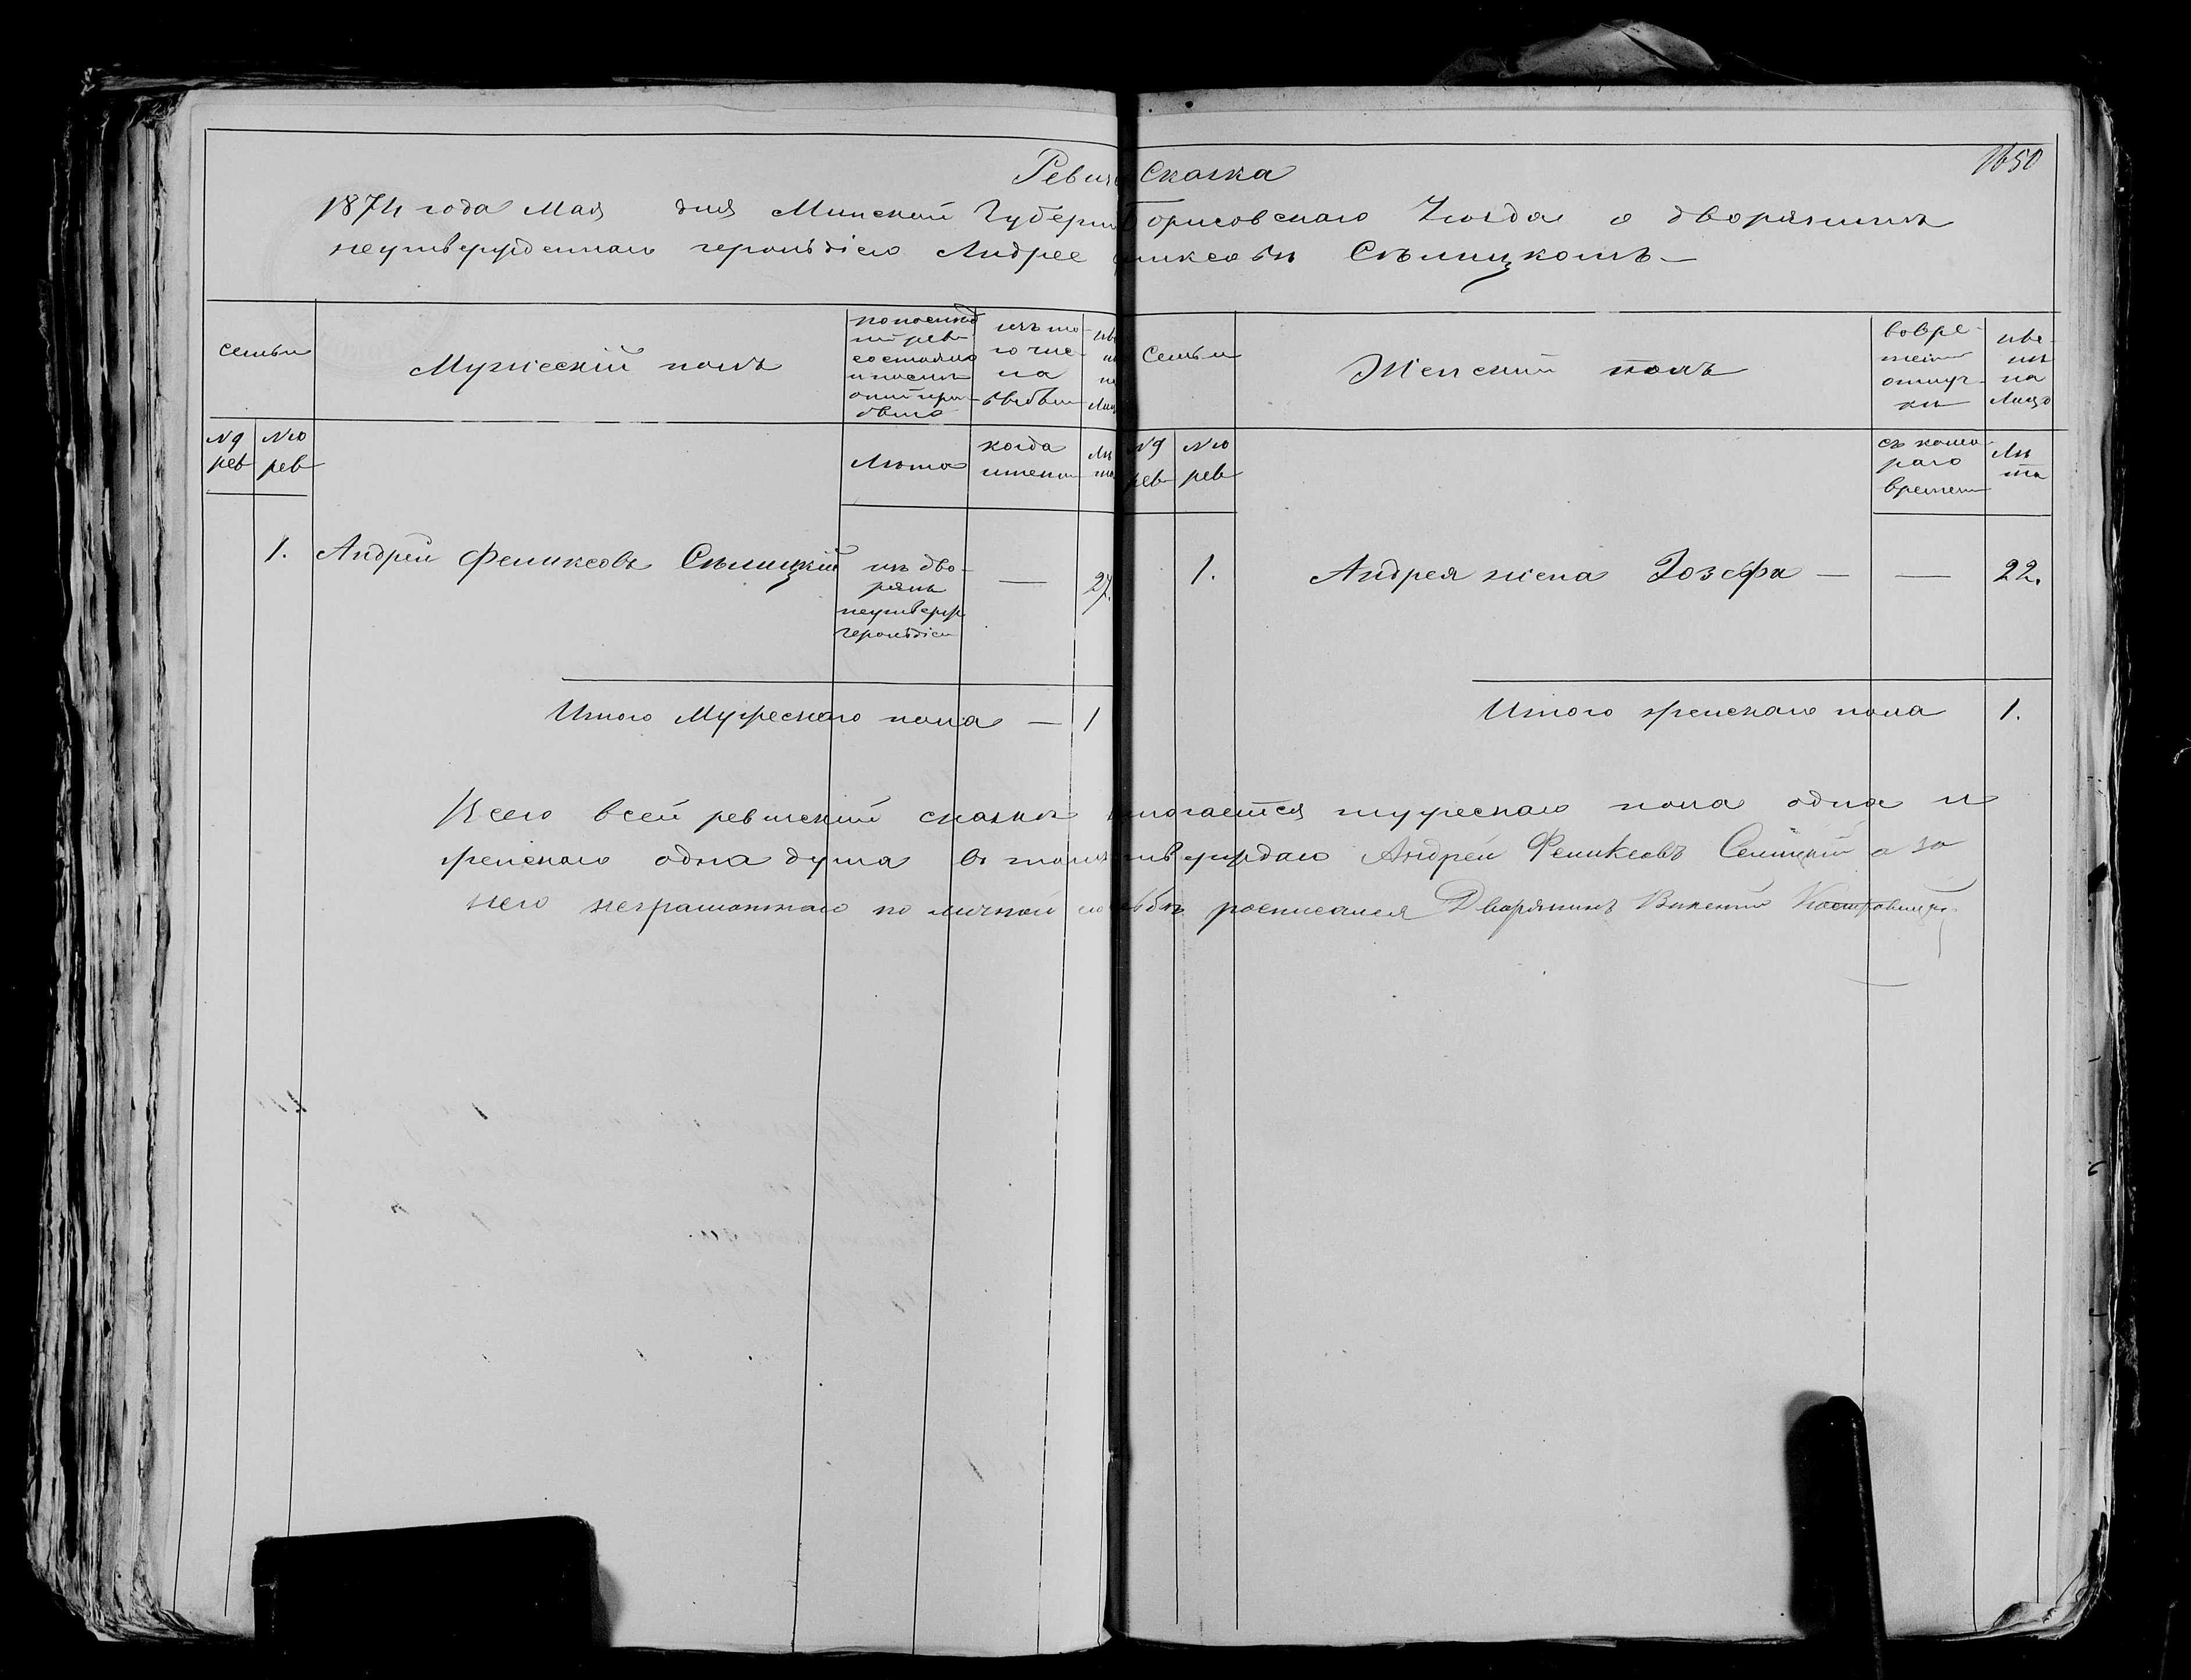 1650
Ревиз Сказка
1874 года Мая дня Минской Губерн Борисовскаго Уезда о дворянинѣ
неутвержденномъ герольдіею Андрее ликсовѣ Сѣлицкомъ
семьи
Мужескій полъ
по послед
ней рев
состояло
и послѣ
оной при
было
изъ то
го чис-
ла
выбыли
Семьи
Женский полъ
во вре-
менной
отлуч-
ки
нынѣ
на
Лицо
№9 рев
№10 рев
Лѣта
когда
имени
Лѣ
та
№9 рев
№10 рев
съ кото-
раго
времени
Лѣ
та
1. Андрей Феликсовъ Сѣлицкій
изъ дво-
рянъ
неутверж
герольдіи
— 27.
1. Андрея жена Іозефа — — 22.
Итого Мужескаго пола — 1
Итого женскаго пола 1.
Всего всей ревизкий сказки лагается мужескаго пола одна и
женскаго одна душа в томъ утверждаю Андрей Феликсовъ Селицкий а за
него неграмотнаго по личной просьбѣ росписался Дворянинъ Викентий